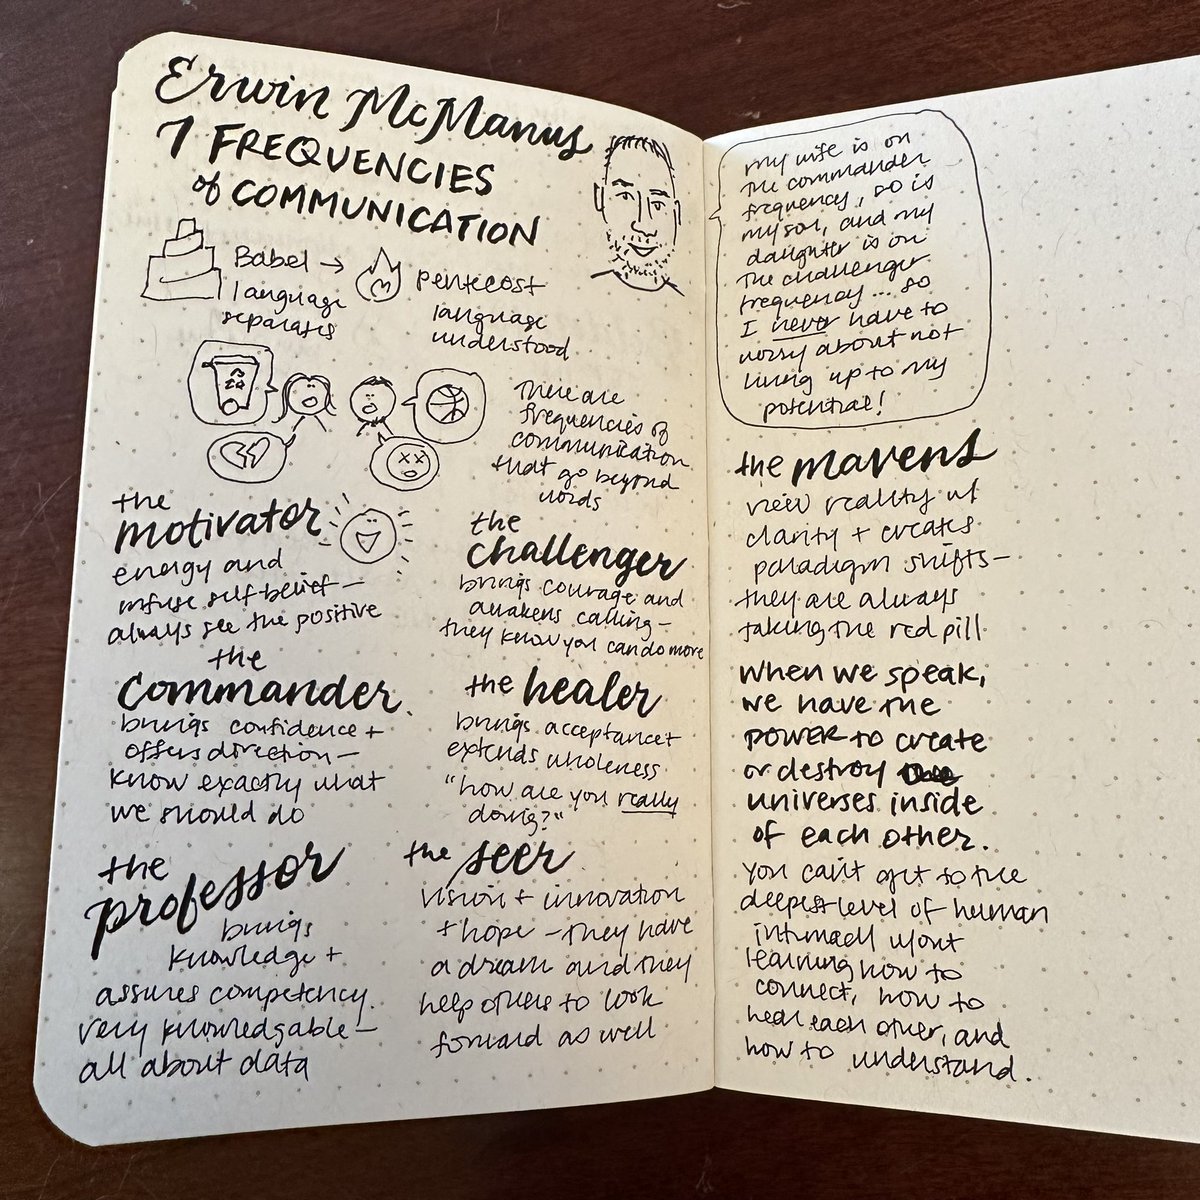 Erwin McManus
7 FREQUENCIES
of COMMUNICATION
Babel →
language
separates
pentecost
language
understood
There are
frequencies of
communication
that go beyond
words
the
motivator
energy and
infuse self-belief —
always see the positive
the
challenger
brings courage and
awakens calling —
they know you can do more
the
commander
brings confidence +
offers direction —
know exactly what
we should do
the healer
brings acceptance +
extends wholeness
"how are you really
doing?"
the
professor
brings
knowledge +
assures competency.
very knowledgable —
all about data
the seer
vision + innovation
+ hope — they have
a dream and they
help others to look
forward as well
my wife is on
the commander
frequency, so is
my son, and my
daughter is on
the challenger
frequency ... so
I never have to
worry about not
living up to my
potential!
the mavens
view reality w/
clarity + creates
paradigm shifts —
they are always
taking the red pill
when we speak,
we have the
power to create
or destroy
universes inside
of each other.
you can't get to the
deepest level of human
w/out
learning how to
connect, how to
heal each other, and
how to understand.